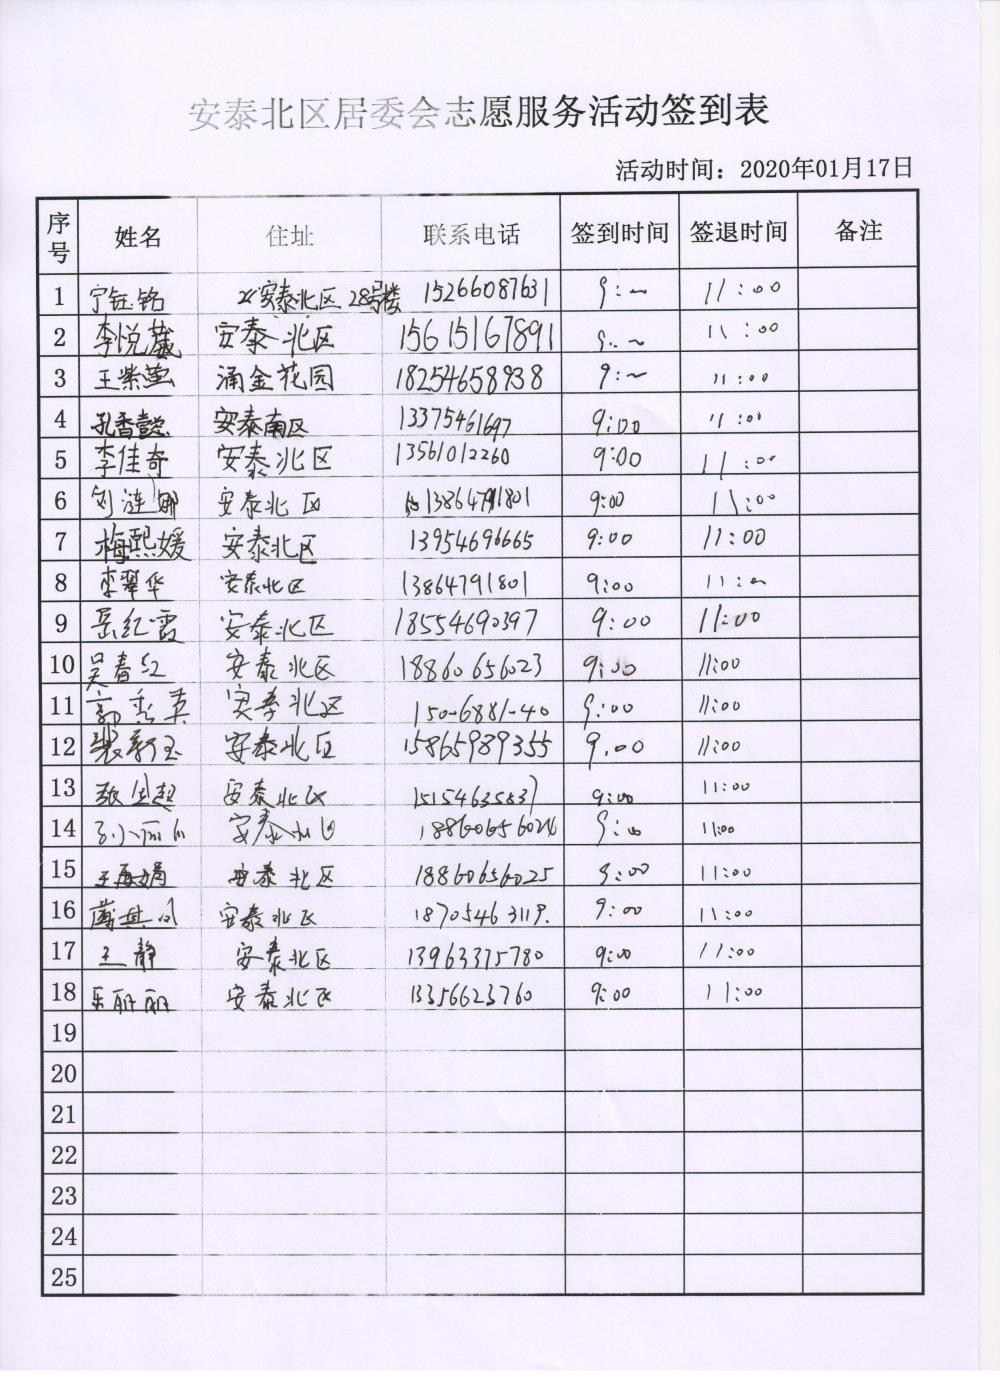 安泰北区居委会志愿服务活动签到表
活动时间：2020年01月17日
序号 姓名 住址 联系电话 签到时间 签退时间 备注
1 宁钰铭 安泰北区28号楼 15266087631 9:00 11:00
2 李悦葳 安泰北区 15615167891 9:00 11:00
3 王紫萤 涌金花园 18254658938 9:00 11:00
4 孔香懿 安泰南区 13375461697 9:00 11:00
5 李佳奇 安泰北区 13561012260 9:00 11:00
6 刘涟娜 安泰北区 13864791801 9:00 11:00
7 梅熙媛 安泰北区 13954696665 9:00 11:00
8 李翠华 安泰北区 13864791801 9:00 11:00
9 岳红霞 安泰北区 18554690397 9:00 11:00
10 吴春红 安泰北区 18860656023 9:00 11:00
11 郭秀英 安泰北区 150-6881-40 9:00 11:00
12 裴新玉 安泰北区 15865989355 9:00 11:00
13 安泰北区 15154635537 9:00 11:00
14 安泰北区 18860656024 9:00 11:00
15 王再娟 安泰北区 18860656025 9:00 11:00
16 安泰北区 18705463119. 9:00 11:00
17 王静 安泰北区 13963375780 9:00 11:00
18 丽丽 安泰北区 13356623760 9:00 11:00
19
20
21
22
23
24
25